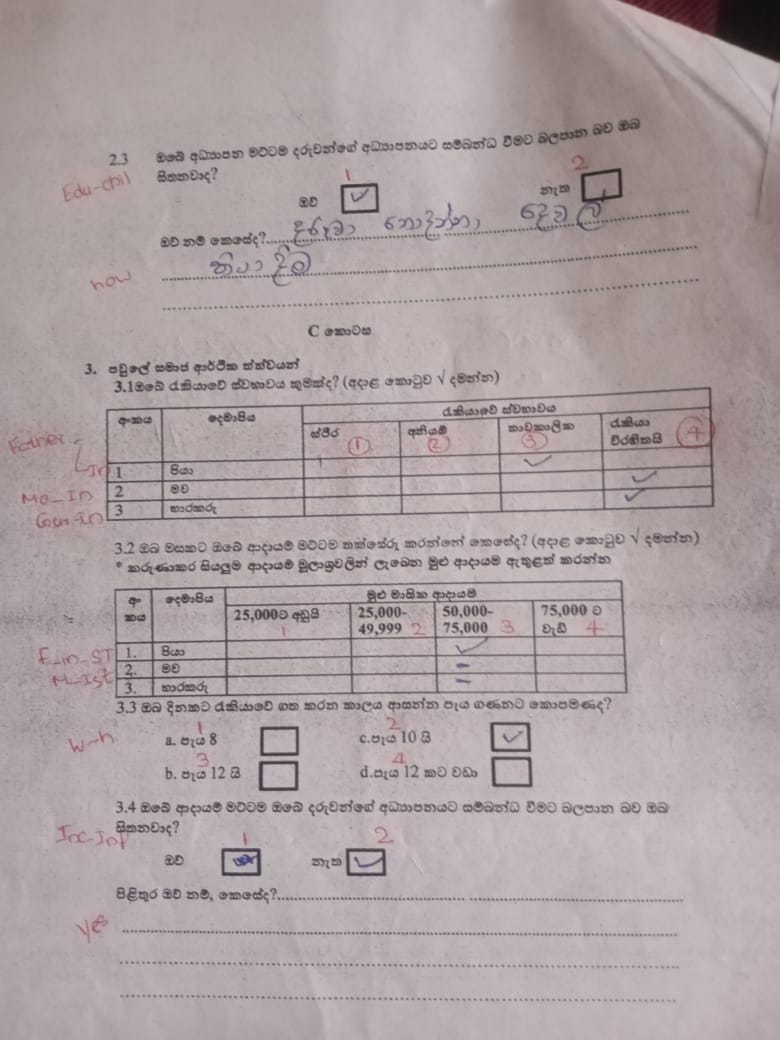 2.3 ඔබේ අධ්‍යාපන මට්ටම දරුවන්ගේ අධ්‍යාපනයට සම්බන්ධ වීමට බලපාන බව ඔබ
Edu-chil සිතනවාද?
1 2
ඔව් ✓ නැත
ඔව් නම් කෙසේද? දරුවා නොදන්නා දේවල්
කියා දීම
how
C කොටස
3. පවුලේ සමාජ ආර්ථික තත්වයන්
3.1ඔබේ රැකියාවේ ස්වභාවය කුමක්ද? (අදාළ කොටුව √ දමන්න)
අංකය දෙමාපිය රැකියාවේ ස්වභාවය
ස්ථිර 1 අනියම් 2 තාවකාලික 3 රැකියා විරහිතයි 4
Father In 1 පියා ✓
Mo_In 2 මව ✓
Gau-in 3 භාරකරු ✓
3.2 ඔබ මසකට ඔබේ ආදායම් මට්ටම තක්සේරු කරන්නේ කෙසේද? (අදාළ කොටුව √ දමන්න)
* කරුණාකර සියලුම ආදායම් මූලාශ්‍රවලින් ලැබෙන මුළු ආදායම ඇතුළත් කරන්න
අංකය දෙමාපිය මුළු මාසික ආදායම
25,000ට අඩුයි 1 25,000-49,999 2 50,000-75,000 3 75,000 ට වැඩි 4
F_in_ST 1. පියා ✓
M_Ist 2. මව =
3. භාරකරු =
3.3 ඔබ දිනකට රැකියාවේ ගත කරන කාලය ආසන්න පැය ගණනට කොපමණද?
1 2
W-h a. පැය 8 c.පැය 10 යි ✓
3 4
b. පැය 12 යි d.පැය 12 කට වඩා
3.4 ඔබේ ආදායම් මට්ටම ඔබේ දරුවන්ගේ අධ්‍යාපනයට සම්බන්ධ වීමට බලපාන බව ඔබ
Inc-Inf සිතනවාද?
1 2
ඔව් නැත ✓
පිළිතුර ඔව් නම්, කෙසේද?
yes